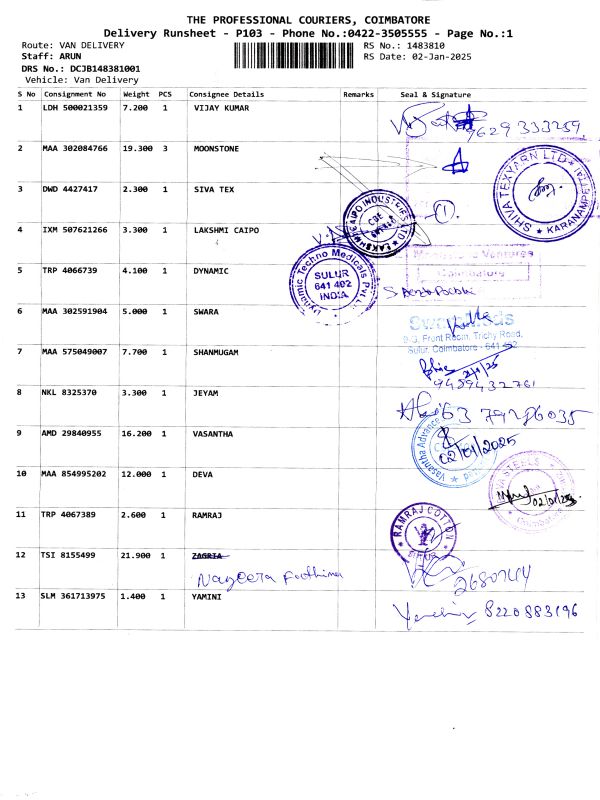 THE PROFESSIONAL COURIERS, COIMBATORE
Delivery Runsheet - P103 - Phone No.:0422-3505555 - Page No.:1
Route: VAN DELIVERY RS No.: 1483810
Staff: ARUN RS Date: 02-Jan-2025
DRS No.: DCJB148381001
Vehicle: Van Delivery
S No Consignment No Weight PCS Consignee Details Remarks Seal & Signature
1 LDH 500021359 7.200 1 VIJAY KUMAR
9629 333259
2 MAA 302084766 19.300 3 MOONSTONE
SHIVA TEXYARN LTD ★ KARANAMPETTAI ★
3 DWD 4427417 2.300 1 SIVA TEX
1
4 IXM 507621266 3.300 1 LAKSHMI CAIPO
LAKSHMI CAIPO INDUSTRIES LTD
Ventures
Coimbatore
5 TRP 4066739 4.100 1 DYNAMIC
Dynamic Techno Medicals Pvt.
SULUR
641 402
INDIA
6 MAA 302591904 5.000 1 SWARA
Front Room, Trichy Road,
Sulur, Coimbatore - 641 402
7 MAA 575049007 7.700 1 SHANMUGAM
2/1/25
9489432761
8 NKL 8325370 3.300 1 JEYAM
63 79286035
9 AMD 29840955 16.200 1 VASANTHA
Vasantha Advance
02/01/2025
10 MAA 854995202 12.000 1 DEVA
STEELS
Coimbatore
11 TRP 4067389 2.600 1 RAMRAJ
RAMRAJ COTTON
12 TSI 8155499 21.900 1 ZAGRIA
Nazeera Foothima
13 SLM 361713975 1.400 1 YAMINI
8220883196